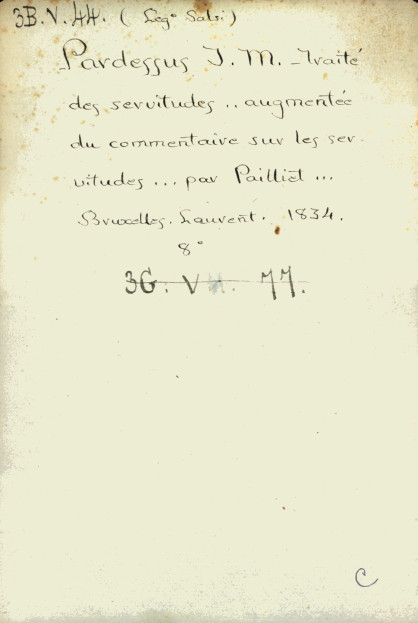 3B.V.44. (Leg° Salvi)
Pardessus J. M. - Traité
des servitudes .. augmentée
du commentaire sur les ser-
vitudes ... par Pailliet ...
Bruxelles. Laurent. 1834.
8°
3G. V 77.
C